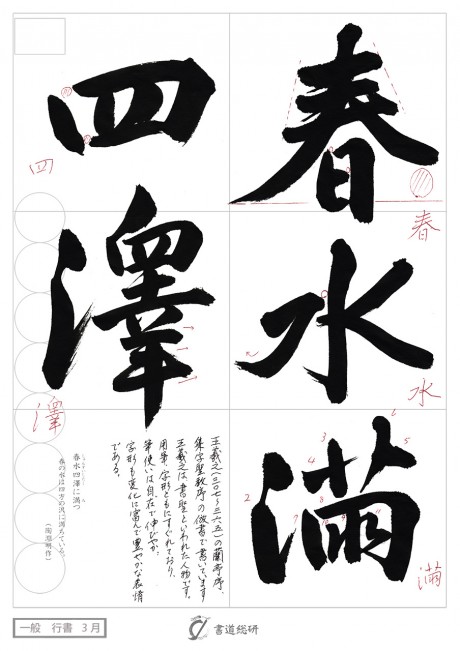 春水満
四澤
春
水
満
四
澤
王羲之(三〇七〜三六五)の蘭亭序、
集字聖教序の倣書で書いています。
王羲之は、書聖といわれた人物です。
用筆、字形ともにすぐれており、
筆使いは自在で伸びやか、
字形も変化に富んで豊やかな表情
である。
春水四澤に満つ
春の水は四方の沢に満ちている。
(陶淵明作)
一般 行書 3月
書道総研